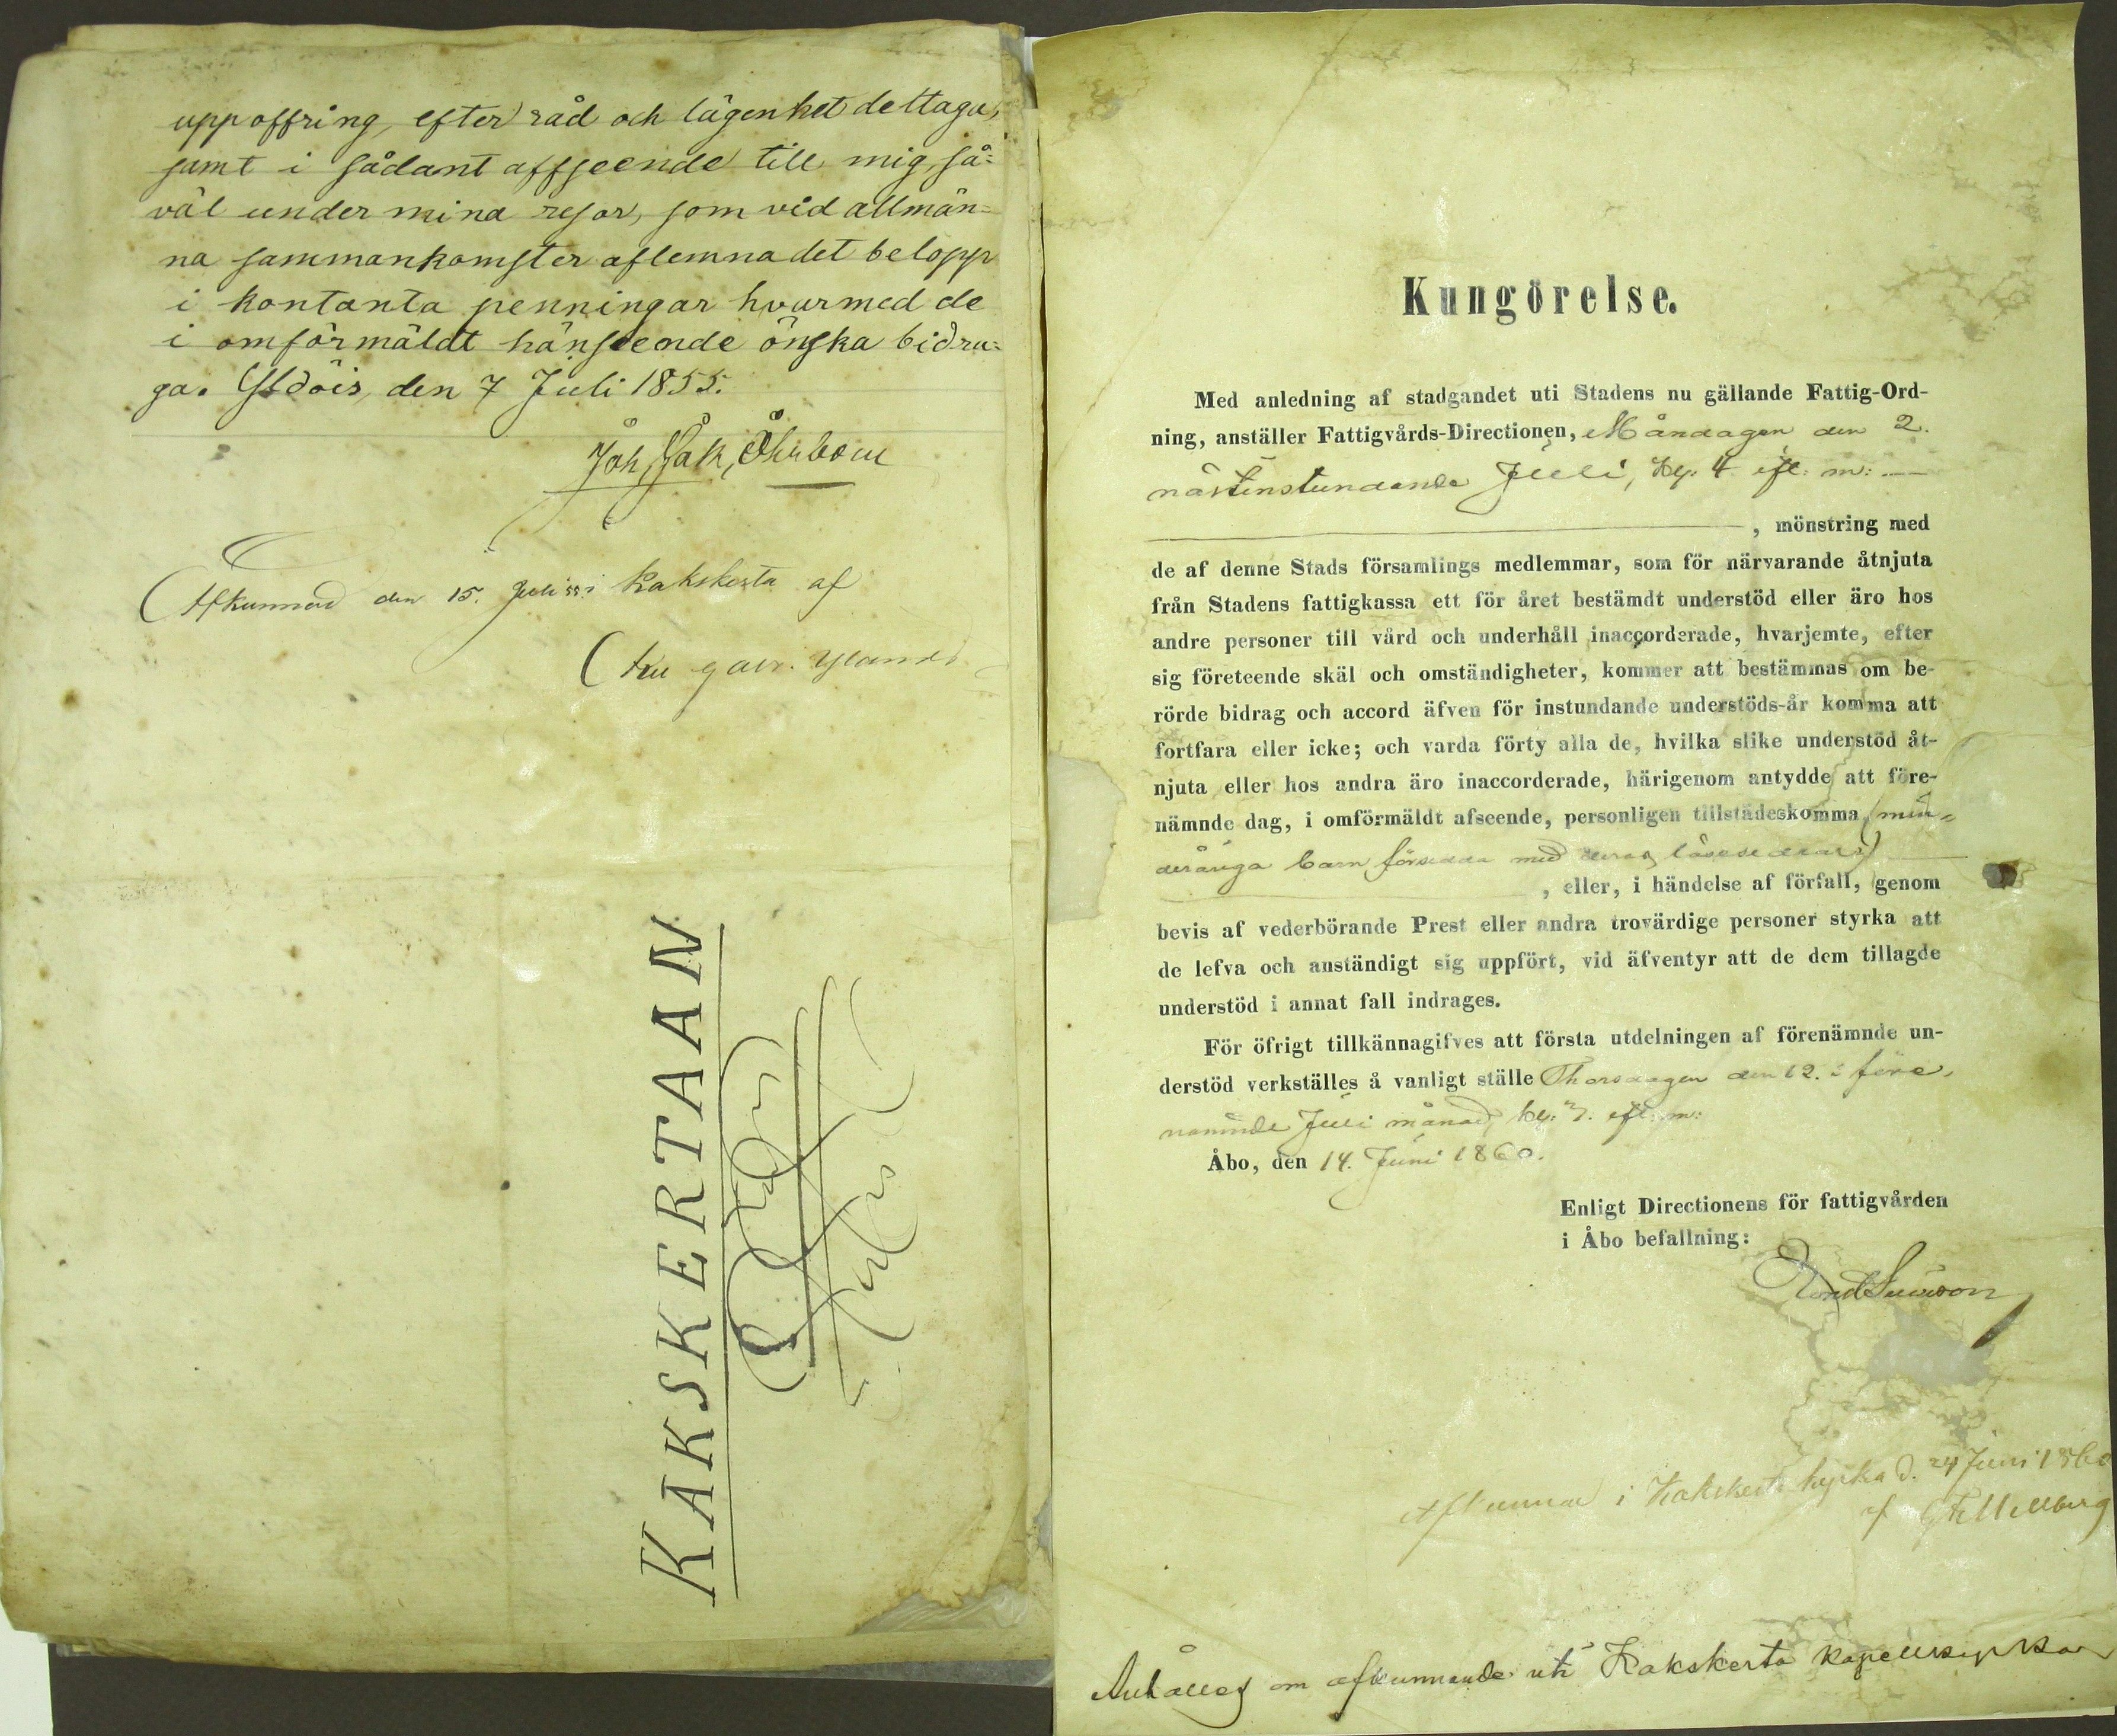 uppoffring, efter råd och lägenhet deltaga,
samt i sådant afseende till mig, så=
väl under mina resor, som vid allmän=
na sammankomster aflemna det belopp
i kontanta penningar hvarmed de
i omförmäldt hänseende önska bidra=
ga. Yldöis, den 7 Juli 1855.
Joh, Jak, Öhrbom
Afkunnad den 15. Juli 55 i Kakskerta af
KAKSKERTAAN
Kungörelse.
Med anledning af stadgandet uti Stadens nu gällande Fattig-Ord-
ning, anställer Fattigvårds-Directionen, Måndagen den 2.
nästinstundande Juli, kl. 4 eft. m:
, mönstring med
de af denne Stads församlings medlemmar, som för närvarande åtnjuta
från Stadens fattigkassa ett för året bestämdt understöd eller äro hos
andre personer till vård och underhåll inaccorderade, hvarjemte, efter
sig företeende skäl och omständigheter, kommer att bestämmas om be-
rörde bidrag och accord äfven för instundande understöds-år komma att
fortfara eller icke; och varda förty alla de, hvilka slike understöd åt-
njuta eller hos andra äro inaccorderade, härigenom antydde att före-
nämnde dag, i omförmäldt afseende, personligen tillstädeskomma (min=
deråriga barn försedda med deras låsesedlar)
, eller, i händelse af förfall, genom
bevis af vederbörande Prest eller andra trovärdige personer styrka att
de lefva och anständigt sig uppfört, vid äfventyr att de dem tillagde
understöd i annat fall indrages.
För öfrigt tillkännagifves att första utdelningen af förenämnde un-
derstöd verkställes å vanligt ställe Thorsdagen den 12. i före,
nämnde Juli månad, kl: 3. eft. m:
Åbo, den 14. Juni 1860.
Enligt Directionens för fattigvården
i Åbo befallning:
Afkunnad i Kakskerta kyrka d. 24 Juni 1860
af
Anhålles om afkunnande uti Kakskerta kapellkyrka